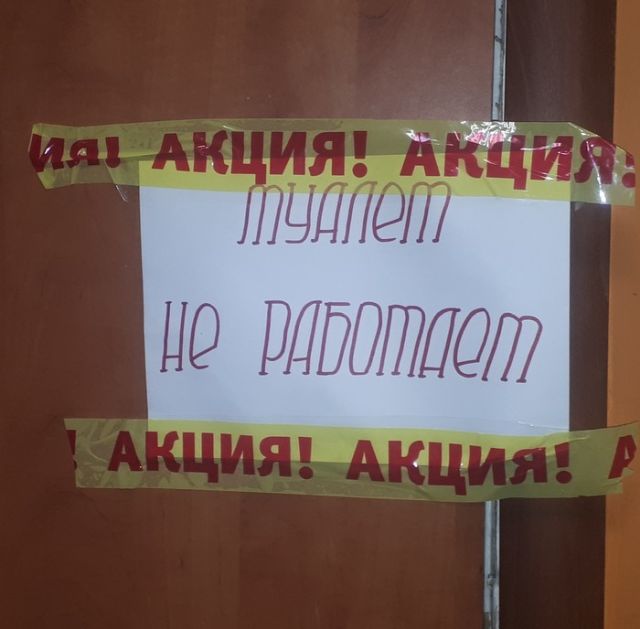 ИЯ! АКЦИЯ! АКЦИЯ!
туалет
не работает
! АКЦИЯ! АКЦИЯ! А